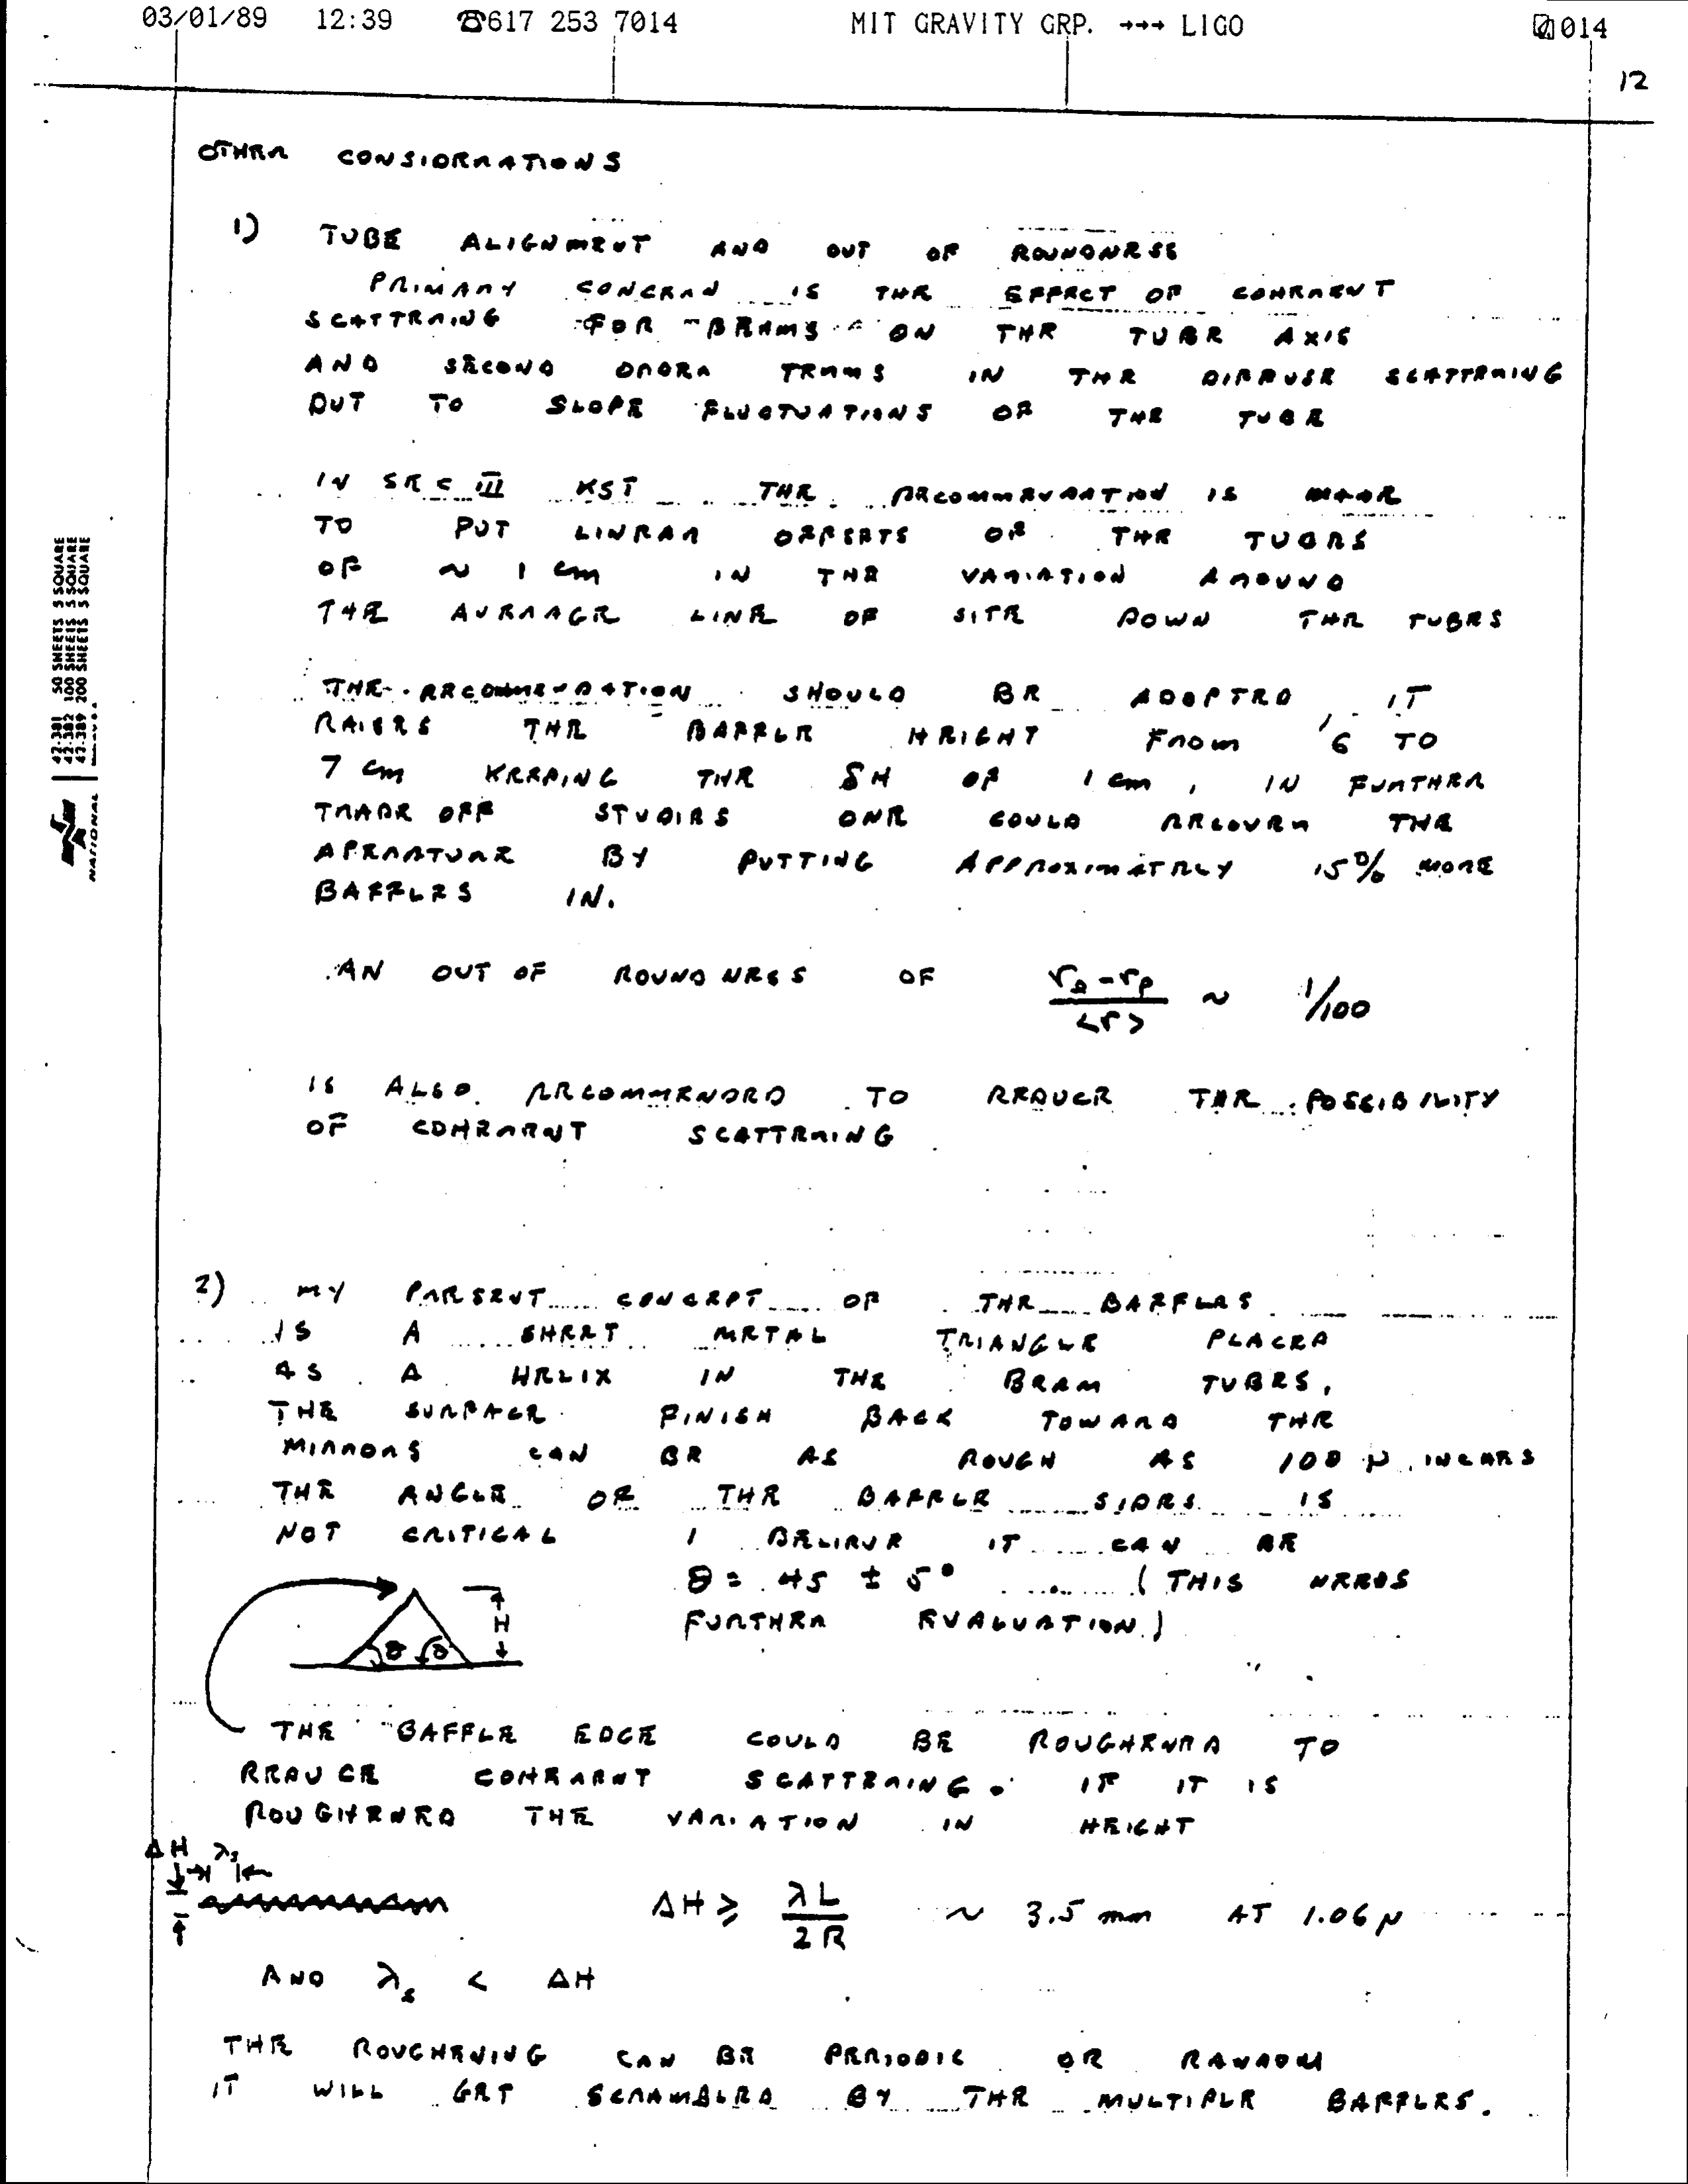 03/01/89 12:39 ☎617 253 7014 MIT GRAVITY GRP. →→→ LIGO 014
12
OTHER CONSIDERATIONS
1) TUBE ALIGNMENT AND OUT OF ROUNDNESS
PRIMARY CONCERN IS THE EFFECT OF COHERENT
SCATTERING FOR BEAMS ON THE TUBE AXIS
AND SECOND ORDER TERMS IN THE DIFFUSE SCATTERING
DUE TO SLOPE FLUCTUATIONS OF THE TUBE
IN SEC III KST THE RECOMMENDATION IS MADE
TO PUT LINEAR OFFSETS OF THE TUBES
OF ~ 1 cm IN THE VARIATION AROUND
THE AVERAGE LINE OF SITE DOWN THE TUBES
THE RECOMMENDATION SHOULD BE ADOPTED, IT
RAISES THE BAFFLE HEIGHT FROM 6 TO
7 cm KEEPING THE δH OF 1 cm, IN FURTHER
TRADE OFF STUDIES ONE COULD RECOVER THE
APERATURE BY PUTTING APPROXIMATELY 15% MORE
BAFFLES IN.
AN OUT OF ROUNDNESS OF (r_a - r_p)/<r> ~ 1/100
IS ALSO RECOMMENDED TO REDUCE THE POSSIBILITY
OF COHERENT SCATTERING
2) MY PRESENT CONCEPT OF THE BAFFLES
IS A SHEET METAL TRIANGLE PLACED
AS A HELIX IN THE BEAM TUBES,
THE SURFACE FINISH BACK TOWARD THE
MIRRORS CAN BE AS ROUGH AS 100 μ INCHES
THE ANGLE OF THE BAFFLE SIDES IS
NOT CRITICAL I BELIEVE IT CAN BE
θ = 45 ± 5° (THIS NEEDS
FURTHER EVALUATION)
H
θ θ
THE BAFFLE EDGE COULD BE ROUGHENED TO
REDUCE COHERENT SCATTERING. IF IT IS
ROUGHENED THE VARIATION IN HEIGHT
ΔH λs
ΔH ≥ λL/2R ~ 3.5 mm AT 1.06 μ
AND λs < ΔH
THE ROUGHENING CAN BE PERIODIC OR RANDOM
IT WILL GET SCRAMBLED BY THE MULTIPLE BAFFLES.
42-381 50 SHEETS 5 SQUARE
42-382 100 SHEETS 5 SQUARE
42-389 200 SHEETS 5 SQUARE
NATIONAL